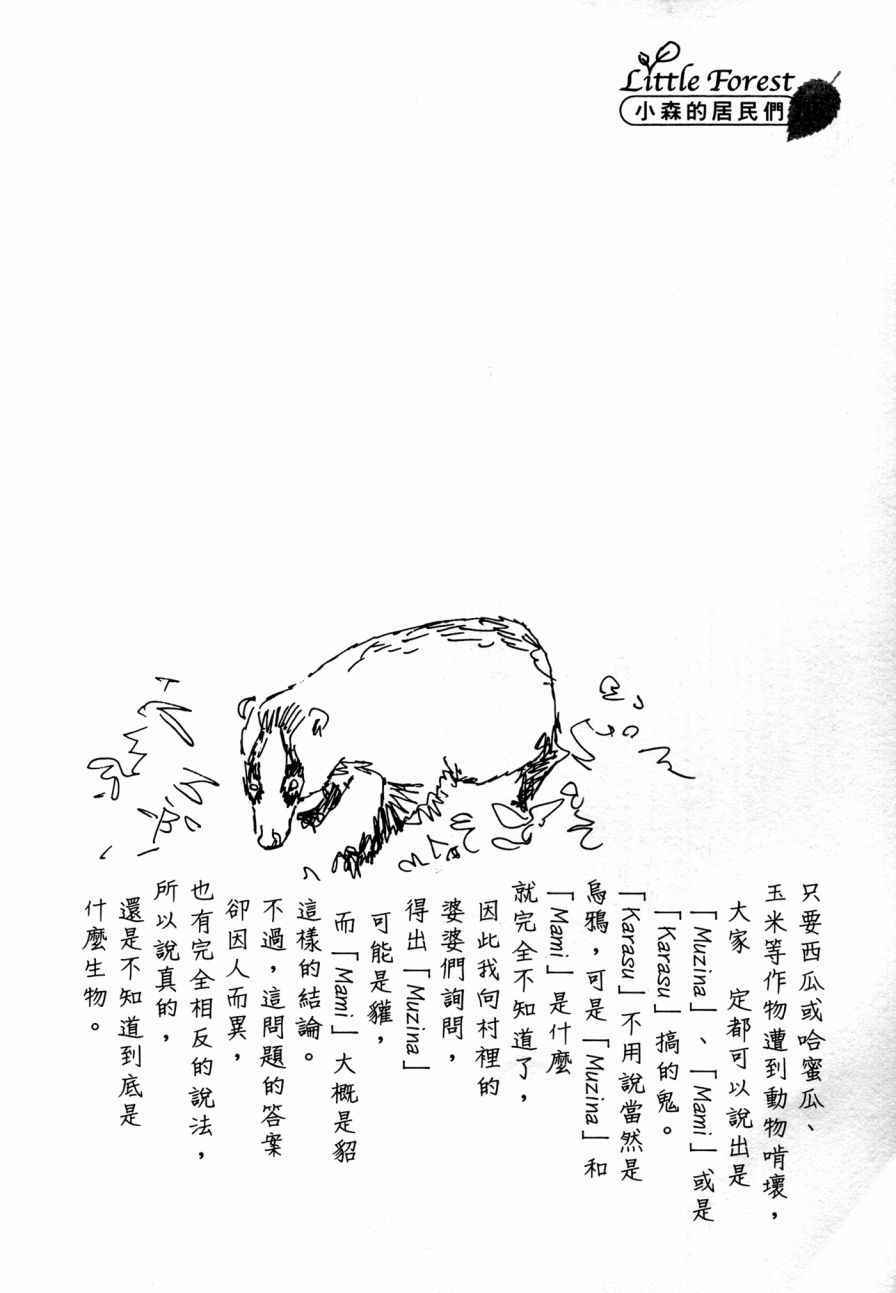 Little Forest
小森的居民們
只要西瓜或哈蜜瓜、
玉米等作物遭到動物啃壞，
大家 定都可以說出是
「Muzina」、「Mami」或是
「Karasu」搞的鬼。
「Karasu」不用說當然是
烏鴉，可是「Muzina」和
「Mami」是什麼
就完全不知道了，
因此我向村裡的
婆婆們詢問，
得出「Muzina」
可能是貛，
而「Mami」大概是貂
這樣的結論。
不過，這問題的答案
卻因人而異，
也有完全相反的說法，
所以說真的，
還是不知道到底是
什麼生物。